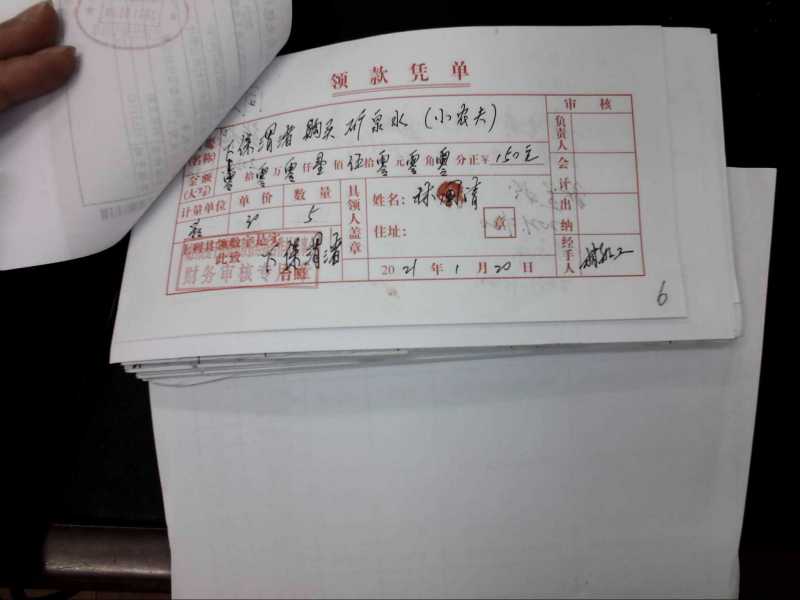 领款凭单
审核
大保渭渚购买矿泉水(小农夫)
(名称)
负责人
金额
(大写) 零拾零万零仟壹佰伍拾零元零角零分正¥150元
会计
计量单位 单价 数量
30 5
具领人盖章
姓名:
住址:
章
出纳
经手人
上理其领数字是实
此致
大保渭渚
台照
财务审核专用
2021年1月20日
6